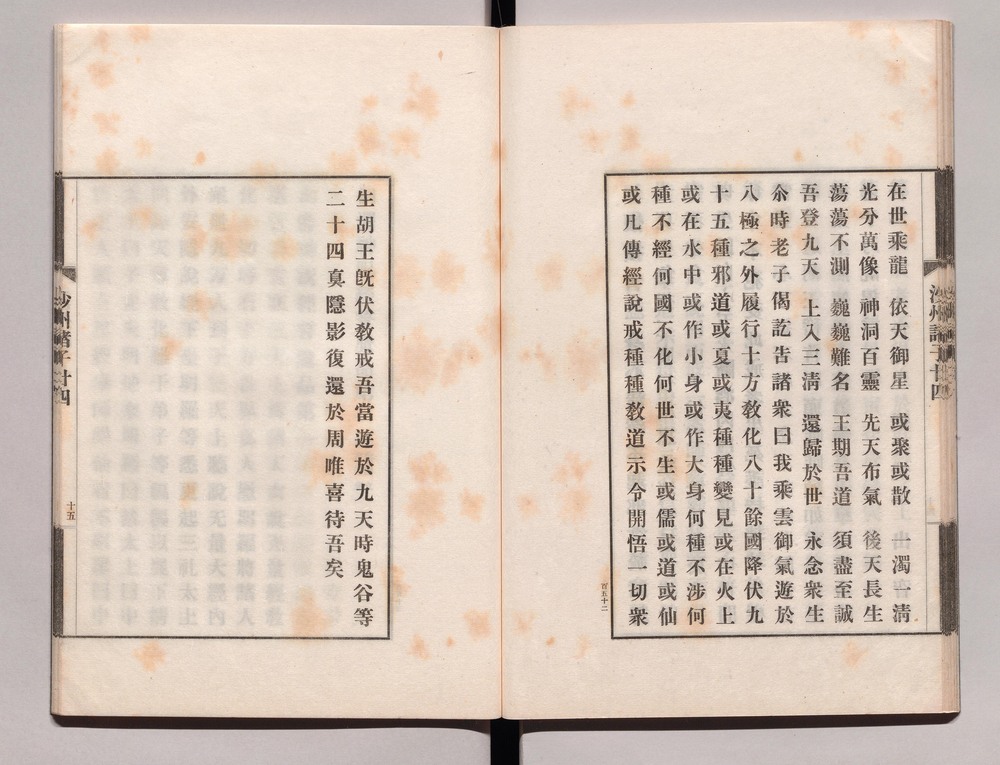 在世乘龍　依天御星　或聚或散　一濁一清
光分萬像　神洞百靈　先天布氣　後天長生
蕩蕩不測　巍巍難名　王期吾道　須盡至誠
吾登九天　上入三清　還歸於世　永念衆生
尒時老子偈訖告諸衆曰我乘雲御氣遊於
八極之外履行十方敎化八十餘國降伏九
十五種邪道或夏或夷種種變見或在火上
或在水中或作小身或作大身何種不涉何
種不經何國不化何世不生或儒或道或仙
或凡傳經說戒種種敎道示令開悟一切衆
百五十二
生胡王旣伏敎戒吾當遊於九天時鬼谷等
二十四眞隱影復還於周唯喜待吾矣
沙州諸子廿四
十五